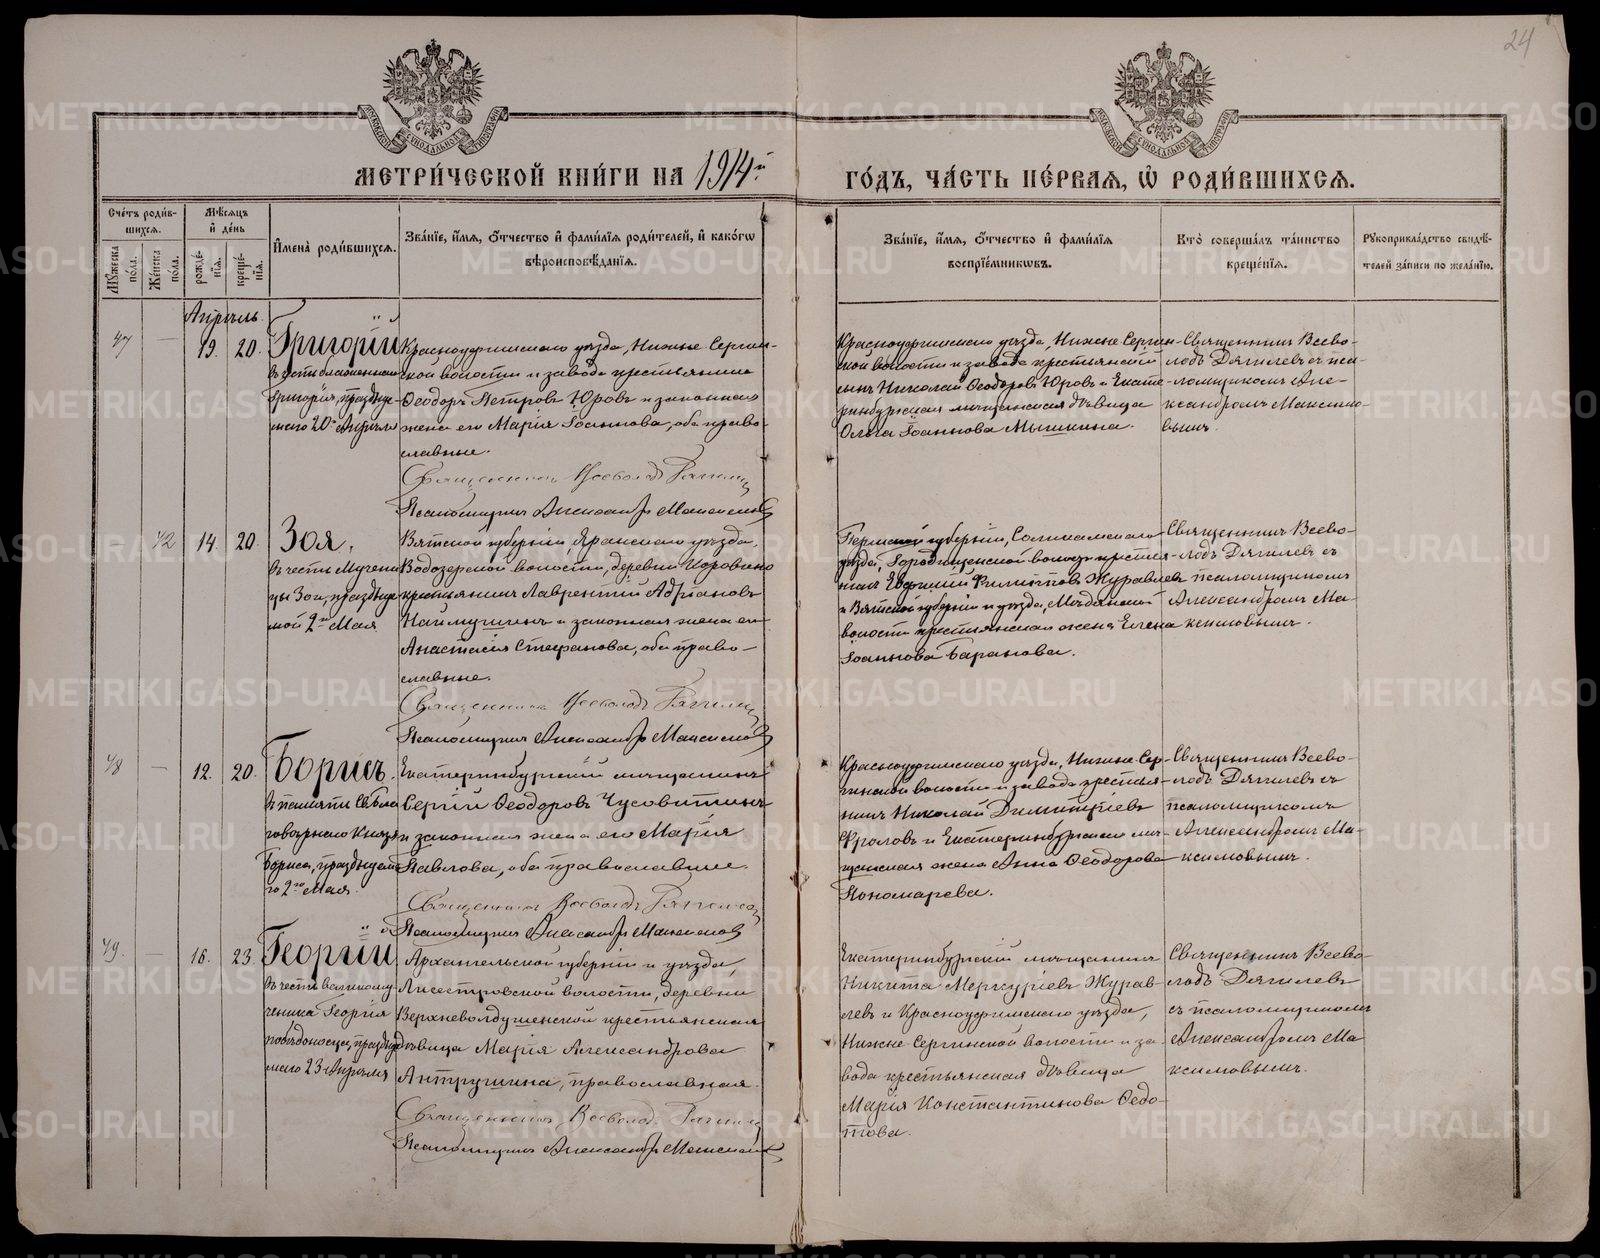 24
МЕТРИ́ЧЕСКОЙ КНИ́ГИ НА 1914й
ГО́ДЪ, ЧА́СТЬ ПЕ́РВАЯ, Ѡ РОДИ́ВШИХСЯ.
Сче́тъ роди́в-
шихся.
Мѣ́сяцъ
и҆ де́нь
Му́жеска по́ла.
Же́нска по́ла.
рожде́-
нїя.
креще́-
нїя.
И҆мена̀ роди́вшихся.
Зва́нїе, и҆́мя, ѻ҆́тчество и҆ фами́лїя роди́телей, и҆ како́гѡ
вѣроисповѣ́данїя.
Зва́нїе, и҆́мя, ѻ҆́тчество и҆ фами́лїя
воспрїе́мникѡвъ.
Кто̀ соверша́лъ та́инство
креще́нїя.
Рꙋкоприкла́дство свидѣ́-
телей за́писи по жела́нїю.
Апрѣль.
47 — 19. 20. Григорій
въ честь
Григорія, праздну-
маго 20го Апрѣля
Красноуфимскаго уѣзда, Нижне Сергин-
ской волости и завода крестьянинъ
Ѳеодоръ Петровъ Юровъ и законная
жена его Марія Іоаннова, оба право-
славные.
Священникъ Всеволодъ Дягилевъ
Псаломщикъ Александръ Максимовъ
Красноуфимскаго уѣзда, Нижне Сергин-
ской волости и завода крестьянскій
сынъ Николай Ѳеодоровъ Юровъ и Екате-
ринбургская мѣщанская дѣвица
Ольга Іоаннова Мышкина.
Священникъ Всево-
лодъ Дягилевъ съ пса-
ломщикомъ Але-
ксандромъ Максимо-
вымъ.
42 14. 20. Зоя.
въ честь Мучени-
цы Зои, праздну-
мой 2го Мая
Вятской губерніи, Яранскаго уѣзда,
Водозерской волости, деревни
крестьянинъ Лаврентій Адріановъ
Наймушинъ и законная жена его
Анастасія Стефанова, оба право-
славные.
Священникъ Всеволодъ Дягилевъ
Псаломщикъ Александръ Максимовъ
Пермской губерніи, Соликамскаго
уѣзда, Городищенской волости крестья-
нинъ Евфимій Филипповъ Журавлевъ
и Вятской губерніи и уѣзда,
волости крестьянская жена Елена
Іоаннова Баранова.
Священникъ Всево-
лодъ Дягилевъ съ
псаломщикомъ
Александромъ Ма-
ксимовымъ.
48 — 12. 20. Борисъ.
въ память Св. Бла-
говѣрнаго Князя
Бориса, празднуема-
го 2го Мая.
Екатеринбургскій мѣщанинъ
Сергій Ѳеодоровъ Чусовитинъ
и законная жена его Марія
Павлова, оба православные.
Священникъ Всеволодъ Дягилевъ
Псаломщикъ Александръ Максимовъ
Красноуфимскаго уѣзда, Нижне Сер-
гинской волости и завода крестья-
нинъ Николай Димитріевъ
Фроловъ и Екатеринбургская мѣ-
щанская жена Анна Ѳеодорова
Пономарева.
Священникъ Всево-
лодъ Дягилевъ съ
псаломщикомъ
Александромъ Ма-
ксимовымъ.
49. — 16. 23. Георгій
въ честь великому-
ченика Георгія
побѣдоносца, праздну-
маго 23 Апрѣля
Архангельской губерніи и уѣзда,
Лисестровской волости, деревни
крестьянская
дѣвица Марія Александрова
Антрушина, православная.
Священникъ Всеволодъ Дягилевъ
Псаломщикъ Александръ Максимовъ
Екатеринбургскій мѣщанинъ
Никита Меркуріевъ Журав-
левъ и Красноуфимскаго уѣзда,
Нижне-Сергинской волости и за-
вода крестьянская дѣвица
Марія Константинова Ѳедо-
това.
Священникъ Всево-
лодъ Дягилевъ
съ псаломщикомъ
Александромъ Ма-
ксимовымъ.
METRIKI.GASO-URAL.RU